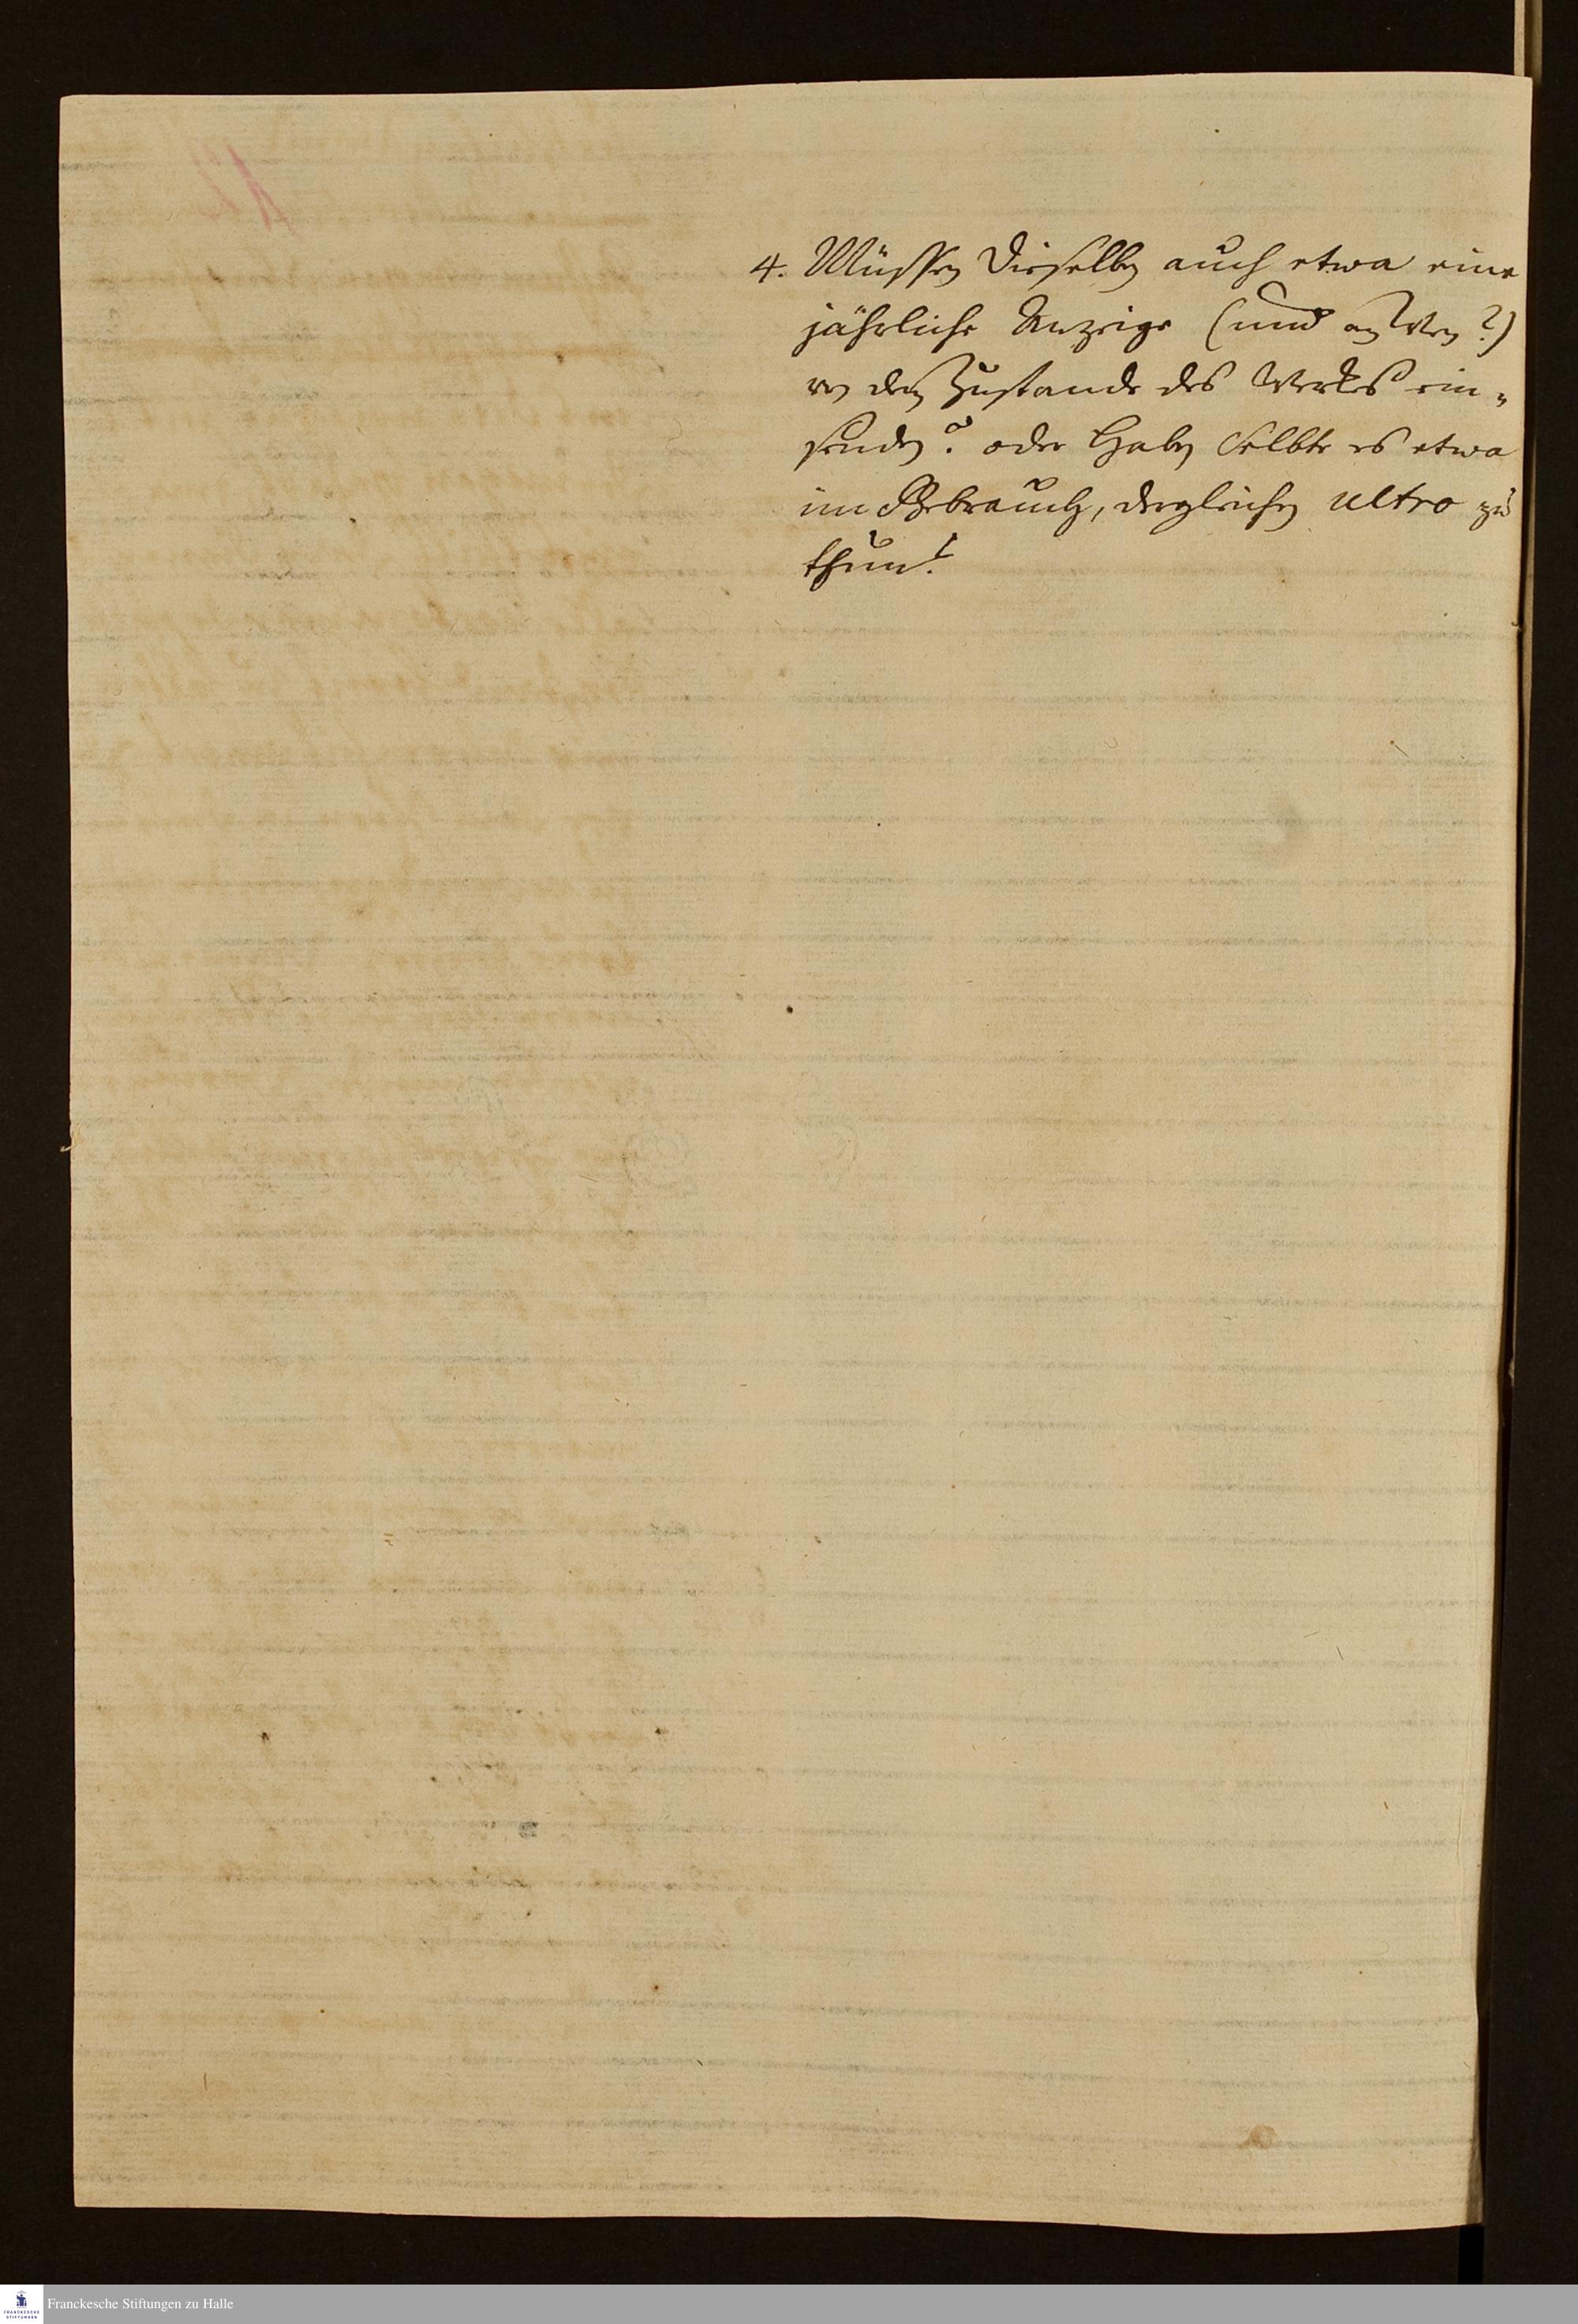 4. Müssen Dieselben auch etwa eine
jährliche Anzeige (und an Wen?)
von dem Zustande des Werkes ein-
senden? oder Haben Selbte es etwa
im Gebrauch, dergleichen ultro zu
thun?
Franckesche Stiftungen zu Halle
FRANCKESCHE
STIFTUNGEN